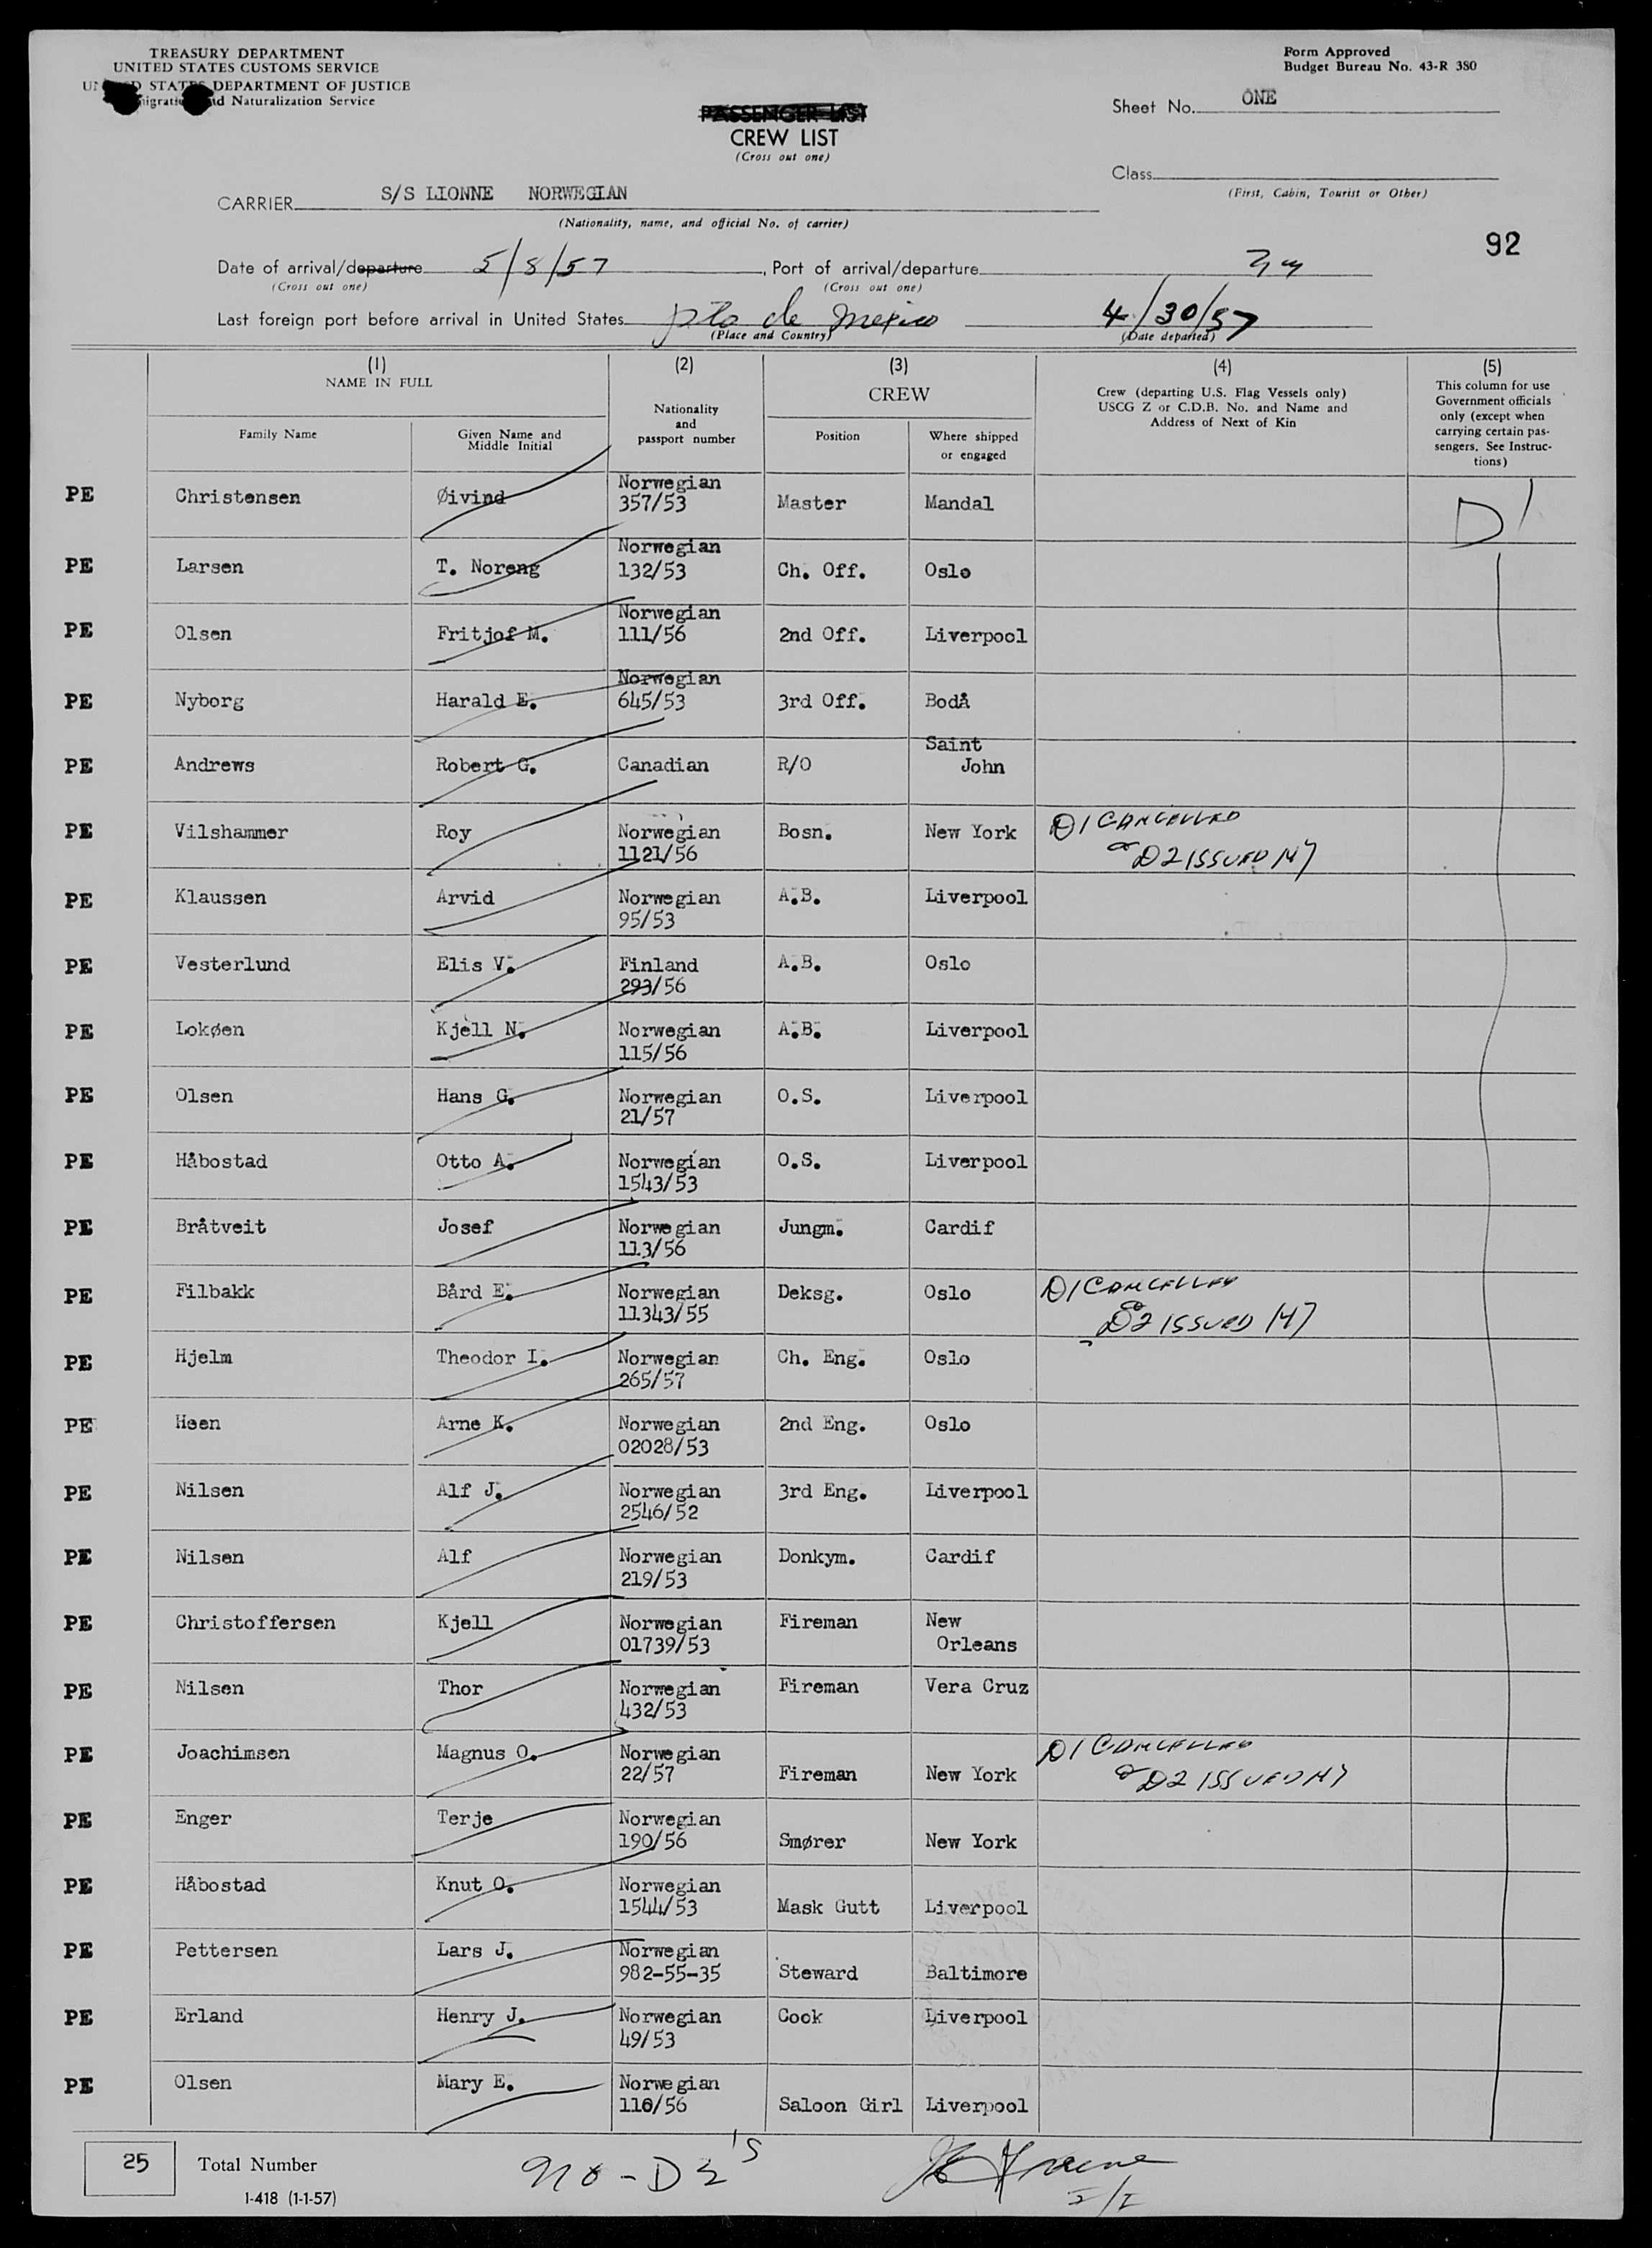 TREASURY DEPARTMENT
UNITED STATES CUSTOMS SERVICE
STATES DEPARTMENT OF JUSTICE
Naturalization Service
Form Approved
Budget Bureau No. 43-R 380
Sheet No. ONE
PASSENGER LIST
CREW LIST
(Cross out one)
Class
(First, Cabin, Tourist or Other)
CARRIER S/S LIONNE NORWEGIAN
(Nationality, name, and official No. of carrier)
92
Date of arrival/departure 5/8/57, Port of arrival/departure
(Cross out one) (Cross out one)
Last foreign port before arrival in United States pto de Mexico 4/30/57
(Place and Country) (Date departed)
(1) (2) (3) (4) (5)
NAME IN FULL
Family Name
Given Name and
Middle Initial
Nationality
and
passport number
CREW
Position
Where shipped
or engaged
Crew (departing U.S. Flag Vessels only)
USCG Z or C.D.B. No. and Name and
Address of Next of Kin
This column for use
Government officials
only (except when
carrying certain pas-
sengers. See Instruc-
tions)
PE Christensen Øivind Norwegian
357/53 Master Mandal D1
PE Larsen T. Noreng Norwegian
132/53 Ch. Off. Oslo
PE Olsen Fritjof M. Norwegian
111/56 2nd Off. Liverpool
PE Nyborg Harald E. Norwegian
645/53 3rd Off. Bodå
PE Andrews Robert G. Canadian R/O Saint
John
PE Vilshammer Roy Norwegian Bosn. New York D1 CANCELLED
1121/56 D2 ISSUED
PE Klaussen Arvid Norwegian A.B. Liverpool
95/53
PE Vesterlund Elis V. Finland A.B. Oslo
293/56
PE Lokøen Kjell N. Norwegian A.B. Liverpool
115/56
PE Olsen Hans G. Norwegian O.S. Liverpool
21/57
PE Håbostad Otto A. Norwegian O.S. Liverpool
1543/53
PE Bråtveit Josef Norwegian Jungm. Cardif
113/56
PE Filbakk Bård E. Norwegian Deksg. Oslo D1 CANCELLED
11343/55 D2 ISSUED
PE Hjelm Theodor I. Norwegian Ch. Eng. Oslo
265/57
PE Heen Arne K. Norwegian 2nd Eng. Oslo
02028/53
PE Nilsen Alf J. Norwegian 3rd Eng. Liverpool
2546/52
PE Nilsen Alf Norwegian Donkym. Cardif
219/53
PE Christoffersen Kjell Norwegian Fireman New
01739/53 Orleans
PE Nilsen Thor Norwegian Fireman Vera Cruz
432/53
PE Joachimsen Magnus O. Norwegian D1 CANCELLED
22/57 Fireman New York D2 ISSUED
PE Enger Terje Norwegian
190/56 Smører New York
PE Håbostad Knut O. Norwegian
1544/53 Mask Gutt Liverpool
PE Pettersen Lars J. Norwegian
982-55-35 Steward Baltimore
PE Erland Henry J. Norwegian Cook Liverpool
49/53
PE Olsen Mary E. Norwegian
116/56 Saloon Girl Liverpool
25 Total Number
I-418 (1-1-57)
no - D2's
I/I